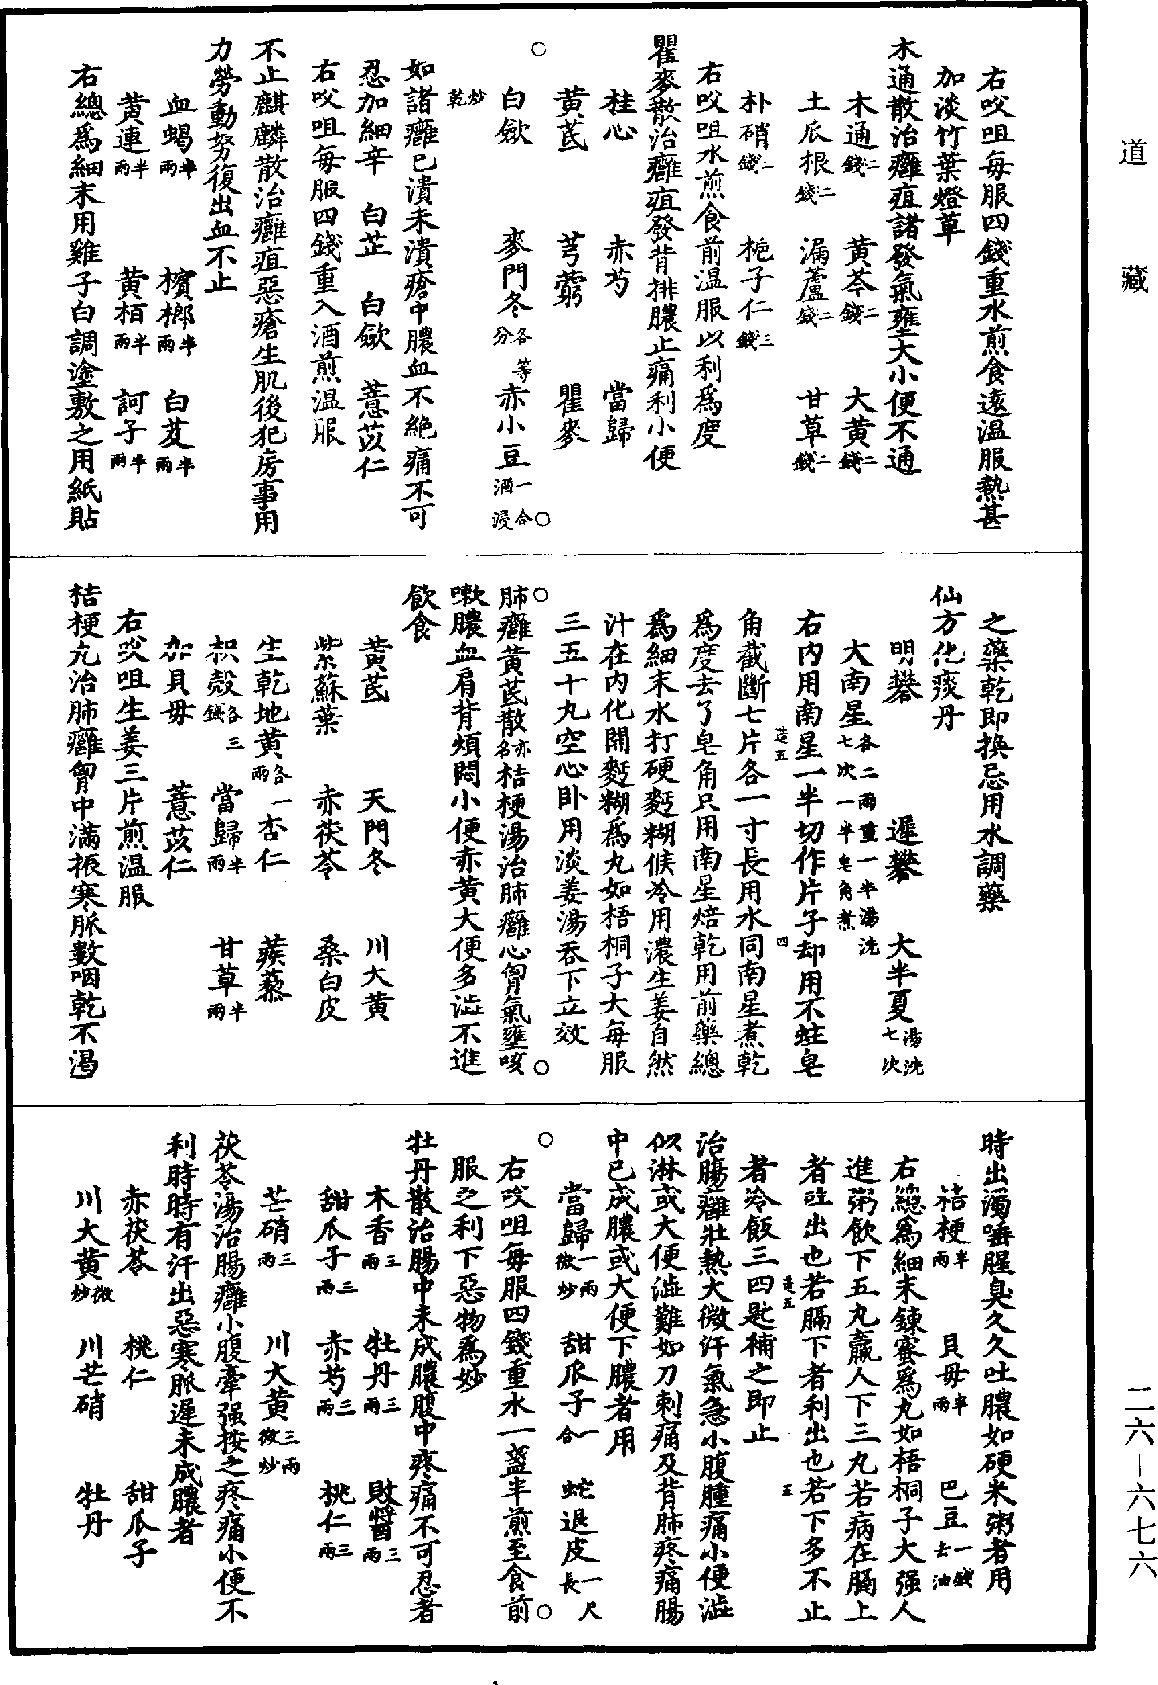 道藏
右㕮咀每服四錢重水煎食遠溫服熱甚
加淡竹葉燈草
木通散治癰疽諸發氣壅大小便不通
木通二錢 黃芩二錢 大黃二錢
土瓜根二錢 漏蘆二錢 甘草二錢
朴硝二錢 梔子仁三錢
右㕮咀水煎食前溫服以利為度
瞿麥散治癰疽發背排膿止痛利小便
桂心 赤芍 當歸
黃芪 芎藭 瞿麥
白斂 麥門冬各等分 赤小豆一合酒浸
炒乾
如諸癰已潰未潰瘡中膿血不絕痛不可
忍加細辛 白芷 白斂 薏苡仁
右㕮咀每服四錢重入酒煎溫服
不止麒麟散治癰疽惡瘡生肌後犯房事用
力勞動努復出血不止
血蝎半兩 檳榔半兩 白芨半兩
黃連半兩 黃栢半兩 訶子半兩
右總為細末用雞子白調塗敷之用紙貼
之藥乾即換忌用水調藥
仙方化痰丹
明礬 遲礬 大半夏湯洗七次
大南星各二兩重一半湯洗七次一半皂角煮
右內用南星一半切作片子却用不蛀皂
角截斷七片各一寸長用水同南星煮乾
為度去了皂角只用南星焙乾用前藥總
為細末水打硬麪糊候冷用濃生姜自然
汁在內化開麪糊為丸如梧桐子大每服
三五十丸空心臥用淡姜湯吞下立效
肺癰黃芪散亦名桔梗湯治肺癰心胷氣壅咳
嗽膿血肩背煩悶小便赤黃大便多澁不進
飲食
黃芪 天門冬 川大黃
紫蘇葉 赤茯苓 桑白皮
生乾地黃各一兩 杏仁 蒺藜
枳殼各三錢 當歸半兩 甘草半兩
加貝母 薏苡仁
右㕮咀生姜三片煎溫服
桔梗丸治肺癰胷中滿振寒脈數咽乾不渴
時出濁唾腥臭久久吐膿如硬米粥者用
桔梗半兩 貝母半兩 巴豆一錢去油
右總為細末鍊蜜為丸如梧桐子大强人
進粥飲下五丸羸人下三丸若病在膈上
者吐出也若膈下者利出也若下多不止
者冷飯三四匙補之即止
治腸癰壯熱大微汗氣急小腹腫痛小便澁
似淋或大便澁難如刀刺痛及背肺疼痛腸
中已成膿或大便下膿者用
當歸一兩微炒 甜瓜子一合 蛇退皮一尺長
右㕮咀每服四錢重水一盞半煎至食前
服之利下惡物為妙
牡丹散治腸中未成膿腹中疼痛不可忍者
木香三兩 牡丹三兩 敗醬三兩
甜瓜子三兩 赤芍三兩 桃仁三兩
芒硝三兩 川大黃三兩微炒
茯苓湯治腸癰小腹牽强按之疼痛小便不
利時時有汗出惡寒脈遲未成膿者
赤茯苓 桃仁 甜瓜子
川大黃微炒 川芒硝 牡丹
二六—六七六